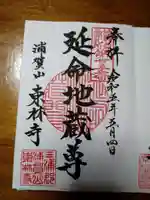 奉拝 令和五年五月四日
延命地蔵尊
浦賀山 東林寺